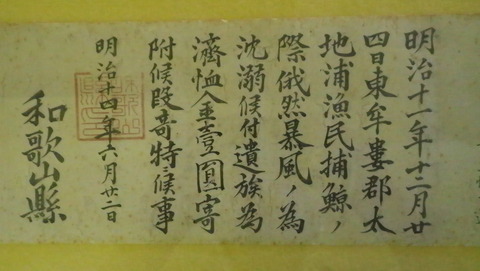 明治十一年十二月廿
四日東牟婁郡太
地浦漁民捕鯨ノ
際俄然暴風ノ為
沈溺候付遺族為
濟恤金壹圓寄
附候段竒特ニ候事
明治十四年六月廿二日
和歌山縣